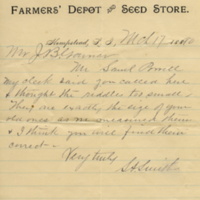 FARMERS' DEPOT AND SEED STORE.
Hempstead, L. I., Mch 17 188
Mr J. B.
Dr. Saml
my clerk says you called here
& thought the riddles too small.
They are exactly the size of your
old ones as we measured them
& I think you will find them
correct.
Very truly
S. A. Smith